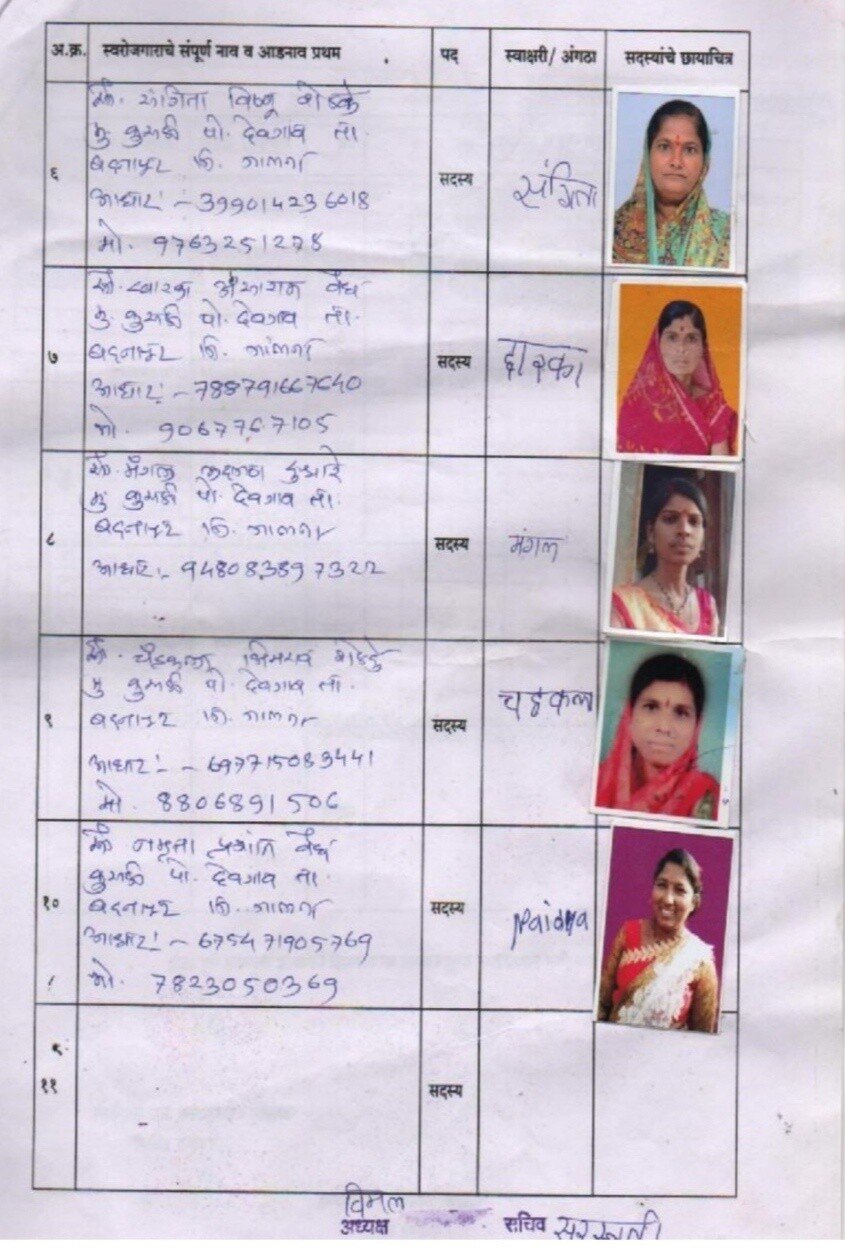 अ.क्र. स्वरोजगाराचे संपूर्ण नाव व आडनाव प्रथम पद स्वाक्षरी/ अंगठा सदस्यांचे छायाचित्र
सौ. संगिता विष्णू बोडके
मु कुसळी पो. देवगाव ता.
बदनापूर जि. जालना
६ सदस्य संगिता
आधार :- 399014236018
मो. 9763251278
सौ. द्वारका वैद्य
मु. कुसळी पो. देवगाव ता.
बदनापूर जि. जालना
७ सदस्य द्वारका
आधार :- 788791667640
मो. 9067767105
सौ. मंगल
मु कुसळी पो. देवगाव ता.
बदनापूर जि. जालना
८ सदस्य मंगल
आधार :- 948083897322
सौ. चंद्रकला भिमराव
मु कुसळी पो. देवगाव ता.
बदनापूर जि. जालना
९ सदस्य चद्रकला
आधार :- 697715083441
मो. 8806891506
सौ नमृता प्रशांत वैद्य
कुसळी पो. देवगाव ता.
बदनापूर जि. जालना
१० सदस्य
आधार :- 675471905769
मो. 7823050369
११ सदस्य
विमल
अध्यक्ष सचिव सरस्वती